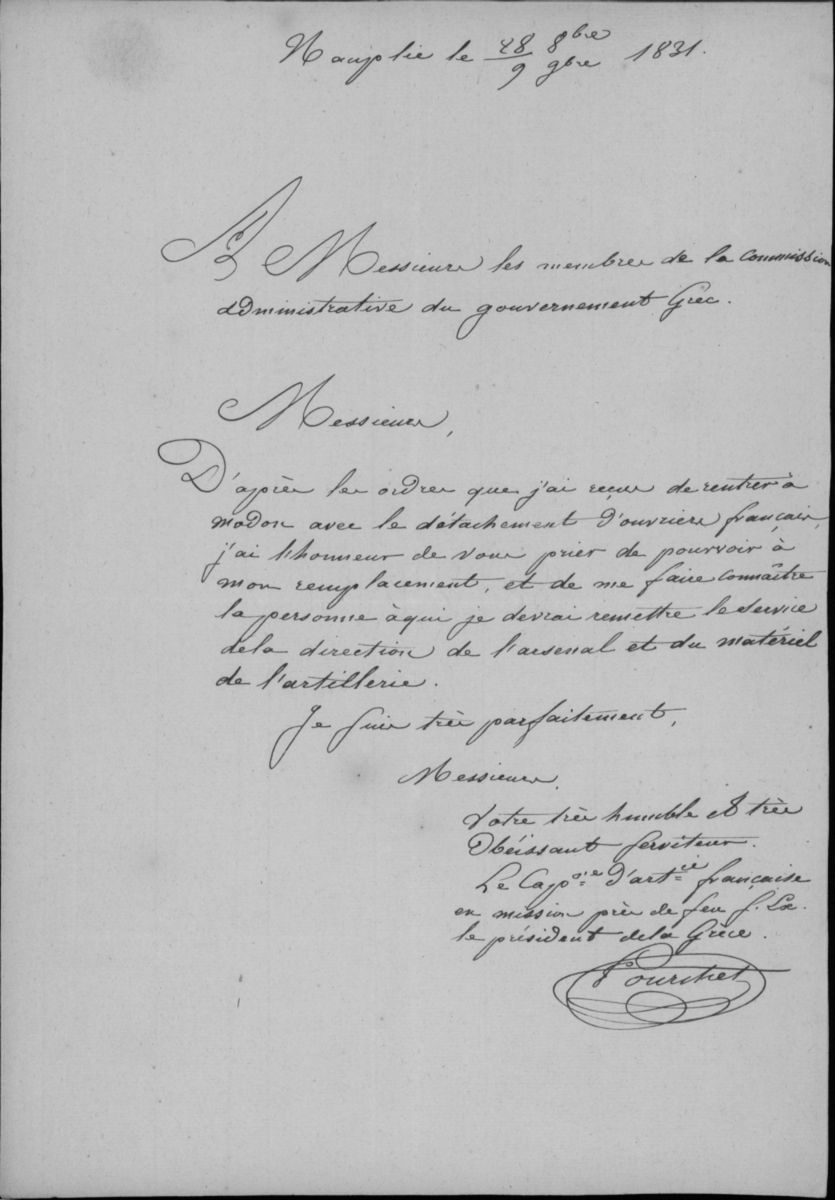 Nauplie le 28/9 8bre/9bre 1831.
A Messieurs les membres de la commission
administrative du gouvernement Grec.
Messieurs,
D'après les ordres que j'ai reçus de rentrer à
modon avec le détachement d'ouvriers français,
j'ai l'honneur de vous prier de pourvoir à
mon remplacement, et de me faire connaître
la personne à qui je devrai remettre le service
de la direction de l'arsenal et du matériel
de l'artillerie.
Je suis très parfaitement,
Messieurs,
Votre très humble et très
Obéissant serviteur.
Le Cap d'artie française
en mission près de feu S. Ex.
le président de la Grèce.
Pourchet